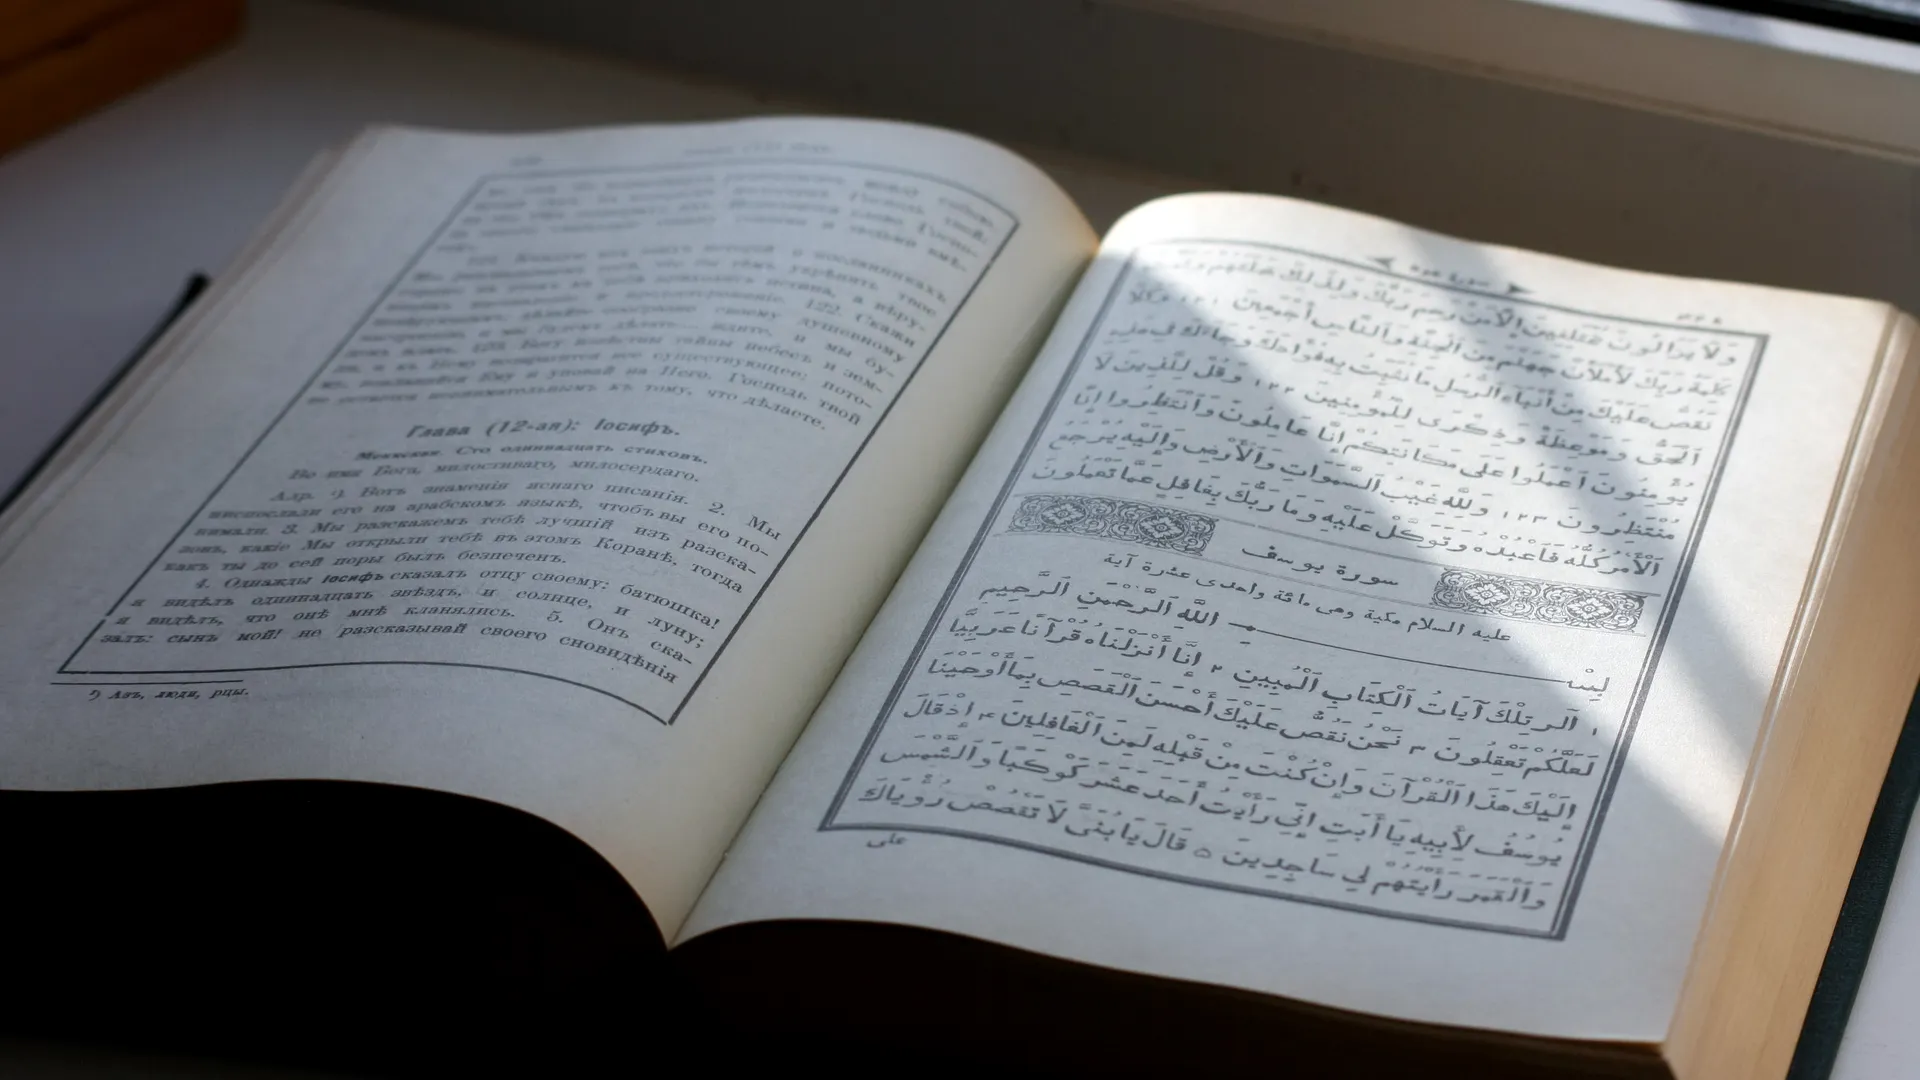 о посланникахъ
укрѣпить твое
истина, а вѣру-
122. Скажи
дѣлайте сообразно своему душевному
настроенію, и мы будемъ дѣлать... ждите, и мы бу-
демъ ждать. 123. Богу извѣстны тайны небесъ и зем-
ли, и къ Нему возвратится все существующее: пото-
му, поклоняйся Ему и уповай на Него. Господь твой
не остается невнимательнымъ къ тому, что дѣлаете.
Глава (12-ая): Іосифъ.
Меккская. Сто одиннадцать стиховъ.
Во имя Бога, милостиваго, милосердаго.
Алр. ¹). Вотъ знаменія яснаго писанія. 2. Мы
ниспослали его на арабскомъ языкѣ, чтобъ вы его по-
нимали. 3. Мы разскажемъ тебѣ лучшій изъ разска-
зовъ, какіе Мы открыли тебѣ въ этомъ Коранѣ, тогда
какъ ты до сей поры былъ безпеченъ.
4. Однажды Іосифъ сказалъ отцу своему: батюшка!
я видѣлъ одиннадцать звѣздъ, и солнце, и луну;
я видѣлъ, что онѣ мнѣ кланялись. 5. Онъ ска-
залъ: сынъ мой! не разсказывай своего сновидѣнія
¹) Азъ, люди, рцы.
سورة هود
وَلَا يَزَالُونَ مُخْتَلِفِينَ إِلَّا مَنْ رَحِمَ رَبُّكَ وَلِذَلِكَ خَلَقَهُمْ وَتَمَّتْ
كَلِمَةُ رَبِّكَ لَأَمْلَأَنَّ جَهَنَّمَ مِنَ الْجِنَّةِ وَالنَّاسِ أَجْمَعِينَ ١٢١ وَكُلًّا
نَقُصُّ عَلَيْكَ مِنْ أَنْبَاءِ الرُّسُلِ مَا نُثَبِّتُ بِهِ فُؤَادَكَ وَجَاءَكَ فِي هَذِهِ
الْحَقُّ وَمَوْعِظَةٌ وَذِكْرَى لِلْمُؤْمِنِينَ ١٢٢ وَقُلْ لِلَّذِينَ لَا
يُؤْمِنُونَ اعْمَلُوا عَلَى مَكَانَتِكُمْ إِنَّا عَامِلُونَ وَانْتَظِرُوا إِنَّا
مُنْتَظِرُونَ ١٢٣ وَلِلَّهِ غَيْبُ السَّمَوَاتِ وَالْأَرْضِ وَإِلَيْهِ يُرْجَعُ
الْأَمْرُ كُلُّهُ فَاعْبُدْهُ وَتَوَكَّلْ عَلَيْهِ وَمَا رَبُّكَ بِغَافِلٍ عَمَّا تَعْمَلُونَ
سورة يوسف
عليه السلام مكية وهى مائة واحدى عشرة آية
بِسْمِ اللَّهِ الرَّحْمَنِ الرَّحِيمِ
١ الر تِلْكَ آيَاتُ الْكِتَابِ الْمُبِينِ ٢ إِنَّا أَنْزَلْنَاهُ قُرْآنًا عَرَبِيًّا
لَعَلَّكُمْ تَعْقِلُونَ ٣ نَحْنُ نَقُصُّ عَلَيْكَ أَحْسَنَ الْقَصَصِ بِمَا أَوْحَيْنَا
إِلَيْكَ هَذَا الْقُرْآنَ وَإِنْ كُنْتَ مِنْ قَبْلِهِ لَمِنَ الْغَافِلِينَ ٤ إِذْ قَالَ
يُوسُفُ لِأَبِيهِ يَا أَبَتِ إِنِّي رَأَيْتُ أَحَدَ عَشَرَ كَوْكَبًا وَالشَّمْسَ
وَالْقَمَرَ رَأَيْتُهُمْ لِي سَاجِدِينَ ٥ قَالَ يَا بُنَيَّ لَا تَقْصُصْ رُؤْيَاكَ
على